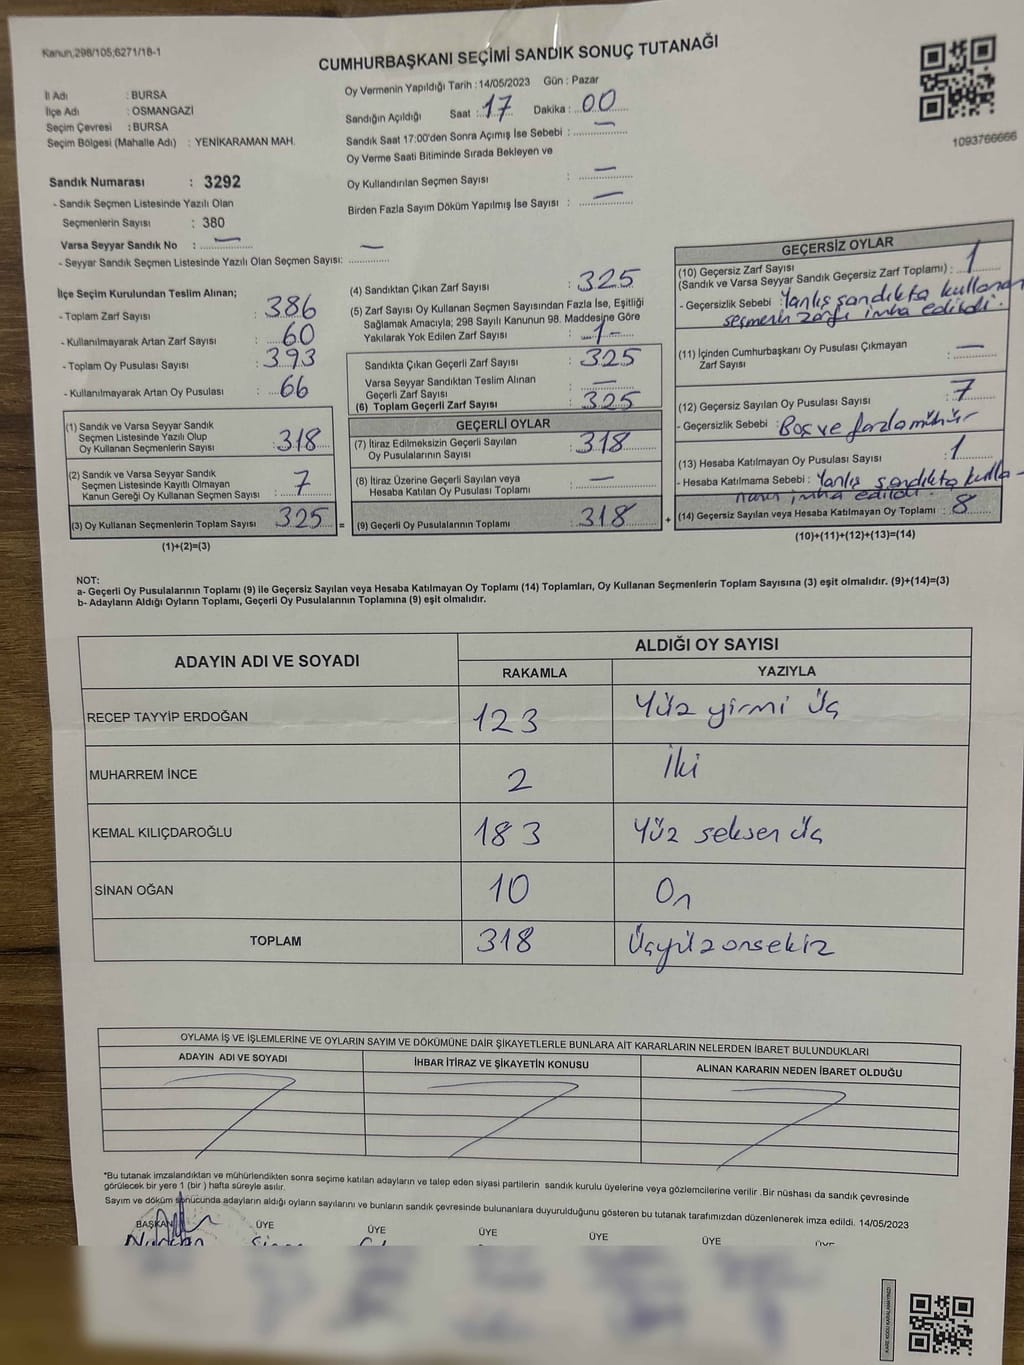 Kanun,298/105;6271/18-1
CUMHURBAŞKANI SEÇİMİ SANDIK SONUÇ TUTANAĞI
1093766666
İl Adı : BURSA
İlçe Adı : OSMANGAZİ
Seçim Çevresi : BURSA
Seçim Bölgesi (Mahalle Adı) : YENİKARAMAN MAH.
Sandık Numarası : 3292
- Sandık Seçmen Listesinde Yazılı Olan
Seçmenlerin Sayısı : 380
Varsa Seyyar Sandık No : —
- Seyyar Sandık Seçmen Listesinde Yazılı Olan Seçmen Sayısı: —
Oy Vermenin Yapıldığı Tarih : 14/05/2023 Gün : Pazar
Sandığın Açıldığı Saat : 17 Dakika : 00
Sandık Saat 17:00'den Sonra Açımış İse Sebebi : —
Oy Verme Saati Bitiminde Sırada Bekleyen ve
Oy Kullandırılan Seçmen Sayısı : —
Birden Fazla Sayım Döküm Yapılmış İse Sayısı : —
İlçe Seçim Kurulundan Teslim Alınan;
- Toplam Zarf Sayısı : 386
- Kullanılmayarak Artan Zarf Sayısı : 60
- Toplam Oy Pusulası Sayısı : 393
- Kullanılmayarak Artan Oy Pusulası : 66
(1) Sandık ve Varsa Seyyar Sandık
Seçmen Listesinde Yazılı Olup
Oy Kullanan Seçmenlerin Sayısı : 318
(2) Sandık ve Varsa Seyyar Sandık
Seçmen Listesinde Kayıtlı Olmayan
Kanun Gereği Oy Kullanan Seçmen Sayısı : 7
(3) Oy Kullanan Seçmenlerin Toplam Sayısı : 325 =
(1)+(2)=(3)
(4) Sandıktan Çıkan Zarf Sayısı : 325
(5) Zarf Sayısı Oy Kullanan Seçmen Sayısından Fazla İse, Eşitliği
Sağlamak Amacıyla; 298 Sayılı Kanunun 98. Maddesine Göre
Yakılarak Yok Edilen Zarf Sayısı : 1-
Sandıkta Çıkan Geçerli Zarf Sayısı : 325
Varsa Seyyar Sandıktan Teslim Alınan
Geçerli Zarf Sayısı : —
(6) Toplam Geçerli Zarf Sayısı : 325
GEÇERLİ OYLAR
(7) İtiraz Edilmeksizin Geçerli Sayılan
Oy Pusulalarının Sayısı : 318
(8) İtiraz Üzerine Geçerli Sayılan veya
Hesaba Katılan Oy Pusulası Toplamı : —
(9) Geçerli Oy Pusulalarının Toplamı : 318 +
GEÇERSİZ OYLAR
(10) Geçersiz Zarf Sayısı
(Sandık ve Varsa Seyyar Sandık Geçersiz Zarf Toplamı) : 1
- Geçersizlik Sebebi : Yanlış sandıkta kullanan
seçmenin zarfı imha edildi.
(11) İçinden Cumhurbaşkanı Oy Pusulası Çıkmayan
Zarf Sayısı : —
(12) Geçersiz Sayılan Oy Pusulası Sayısı : 7
- Geçersizlik Sebebi : Boş ve fazla mühür
(13) Hesaba Katılmayan Oy Pusulası Sayısı : 1
- Hesaba Katılmama Sebebi : Yanlış sandıkta kulla-
nımı imha edildi.
(14) Geçersiz Sayılan veya Hesaba Katılmayan Oy Toplamı : 8
(10)+(11)+(12)+(13)=(14)
NOT:
a- Geçerli Oy Pusulalarının Toplamı (9) ile Geçersiz Sayılan veya Hesaba Katılmayan Oy Toplamı (14) Toplamları, Oy Kullanan Seçmenlerin Toplam Sayısına (3) eşit olmalıdır. (9)+(14)=(3)
b- Adayların Aldığı Oyların Toplamı, Geçerli Oy Pusulalarının Toplamına (9) eşit olmalıdır.
ADAYIN ADI VE SOYADI ALDIĞI OY SAYISI
RAKAMLA YAZIYLA
RECEP TAYYİP ERDOĞAN 123 Yüz yirmi üç
MUHARREM İNCE 2 İki
KEMAL KILIÇDAROĞLU 183 Yüz seksen üç
SİNAN OĞAN 10 On
TOPLAM 318 Üçyüzonsekiz
OYLAMA İŞ VE İŞLEMLERİNE VE OYLARIN SAYIM VE DÖKÜMÜNE DAİR ŞİKAYETLERLE BUNLARA AİT KARARLARIN NELERDEN İBARET BULUNDUKLARI
ADAYIN ADI VE SOYADI İHBAR İTİRAZ VE ŞİKAYETİN KONUSU ALINAN KARARIN NEDEN İBARET OLDUĞU
*Bu tutanak imzalandıktan ve mühürlendikten sonra seçime katılan adayların ve talep eden siyasi partilerin sandık kurulu üyelerine veya gözlemcilerine verilir .Bir nüshası da sandık çevresinde
görülecek bir yere 1 (bir ) hafta süreyle asılır.
Sayım ve döküm sonucunda adayların aldığı oyların sayılarını ve bunların sandık çevresinde bulunanlara duyurulduğunu gösteren bu tutanak tarafımızdan düzenlenerek imza edildi. 14/05/2023
BAŞKAN ÜYE ÜYE ÜYE ÜYE ÜYE ÜYE